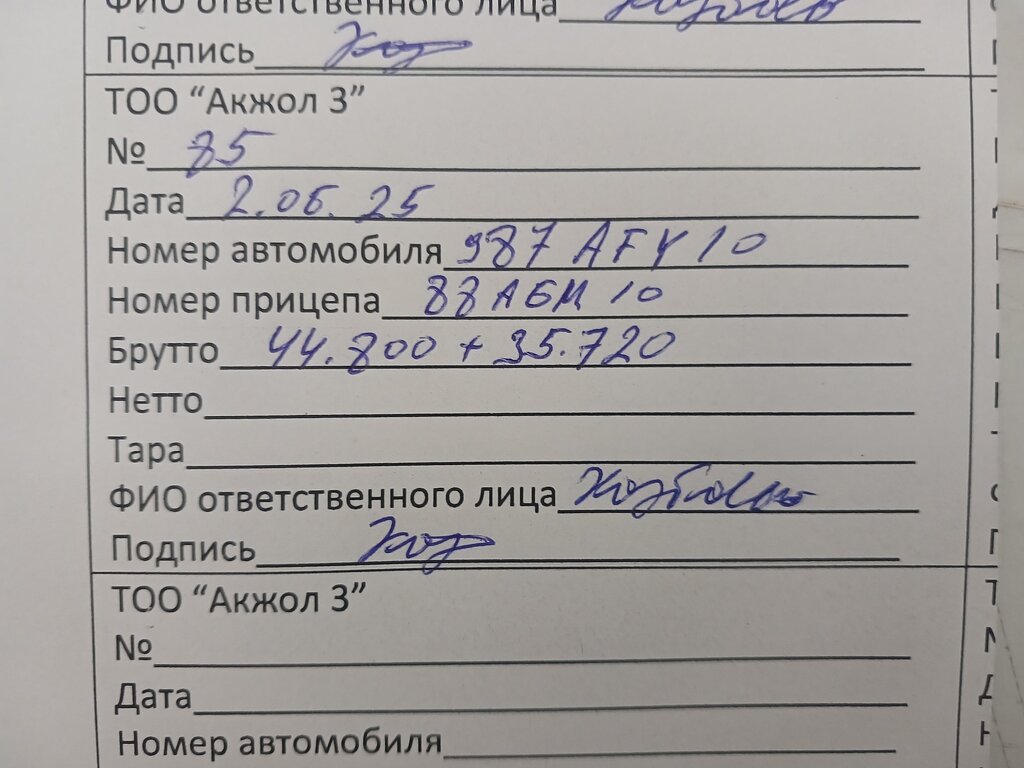 ФИО ответственного лица
Подпись
ТОО “Акжол 3”
№ 85
Дата 2.06.25
Номер автомобиля 987 AFY 10
Номер прицепа 88 АБМ 10
Брутто 44.800 + 35.720
Нетто
Тара
ФИО ответственного лица
Подпись
ТОО “Акжол 3”
№
Дата
Номер автомобиля